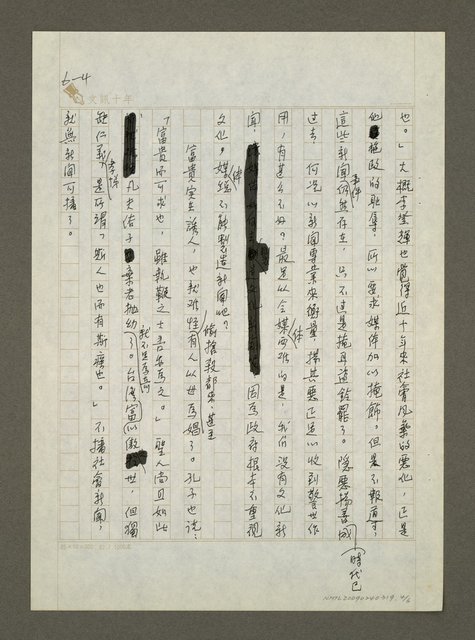 6-4
文訊十年
也。」大概李登輝也覺得近十年來社會風氣的惡化,正是
他施政的恥辱,所以要求媒體加以掩飾。但是不報導,
這些新聞事件仍然存在,只不過是掩耳盜鈴罷了。隱惡揚善的時代已
過去,何況以新聞專業來衡量,揚其惡正是以收到警世作
用,有甚麼不好?最是以令媒體兩難的是,我們沒有文化新
聞,因為政府根本不重視
文化。媒體總不能製造新聞吧?
富貴實在誘人,也就難怪有人偷搶殺部來,甚至以世為娼了。孔子也說:
「富貴不可求也,雖執鞭之士吾亦為之。」聖人尚且如此
,凡夫俗子就不足為奇棄老拋幼了。台灣富以傲世,但獨
缺仁義孝悌,是所謂「斯人也而有斯疾也。」不播社會新聞,
就無新聞可播了。
25×12=300
NMTL20090240319 4/6